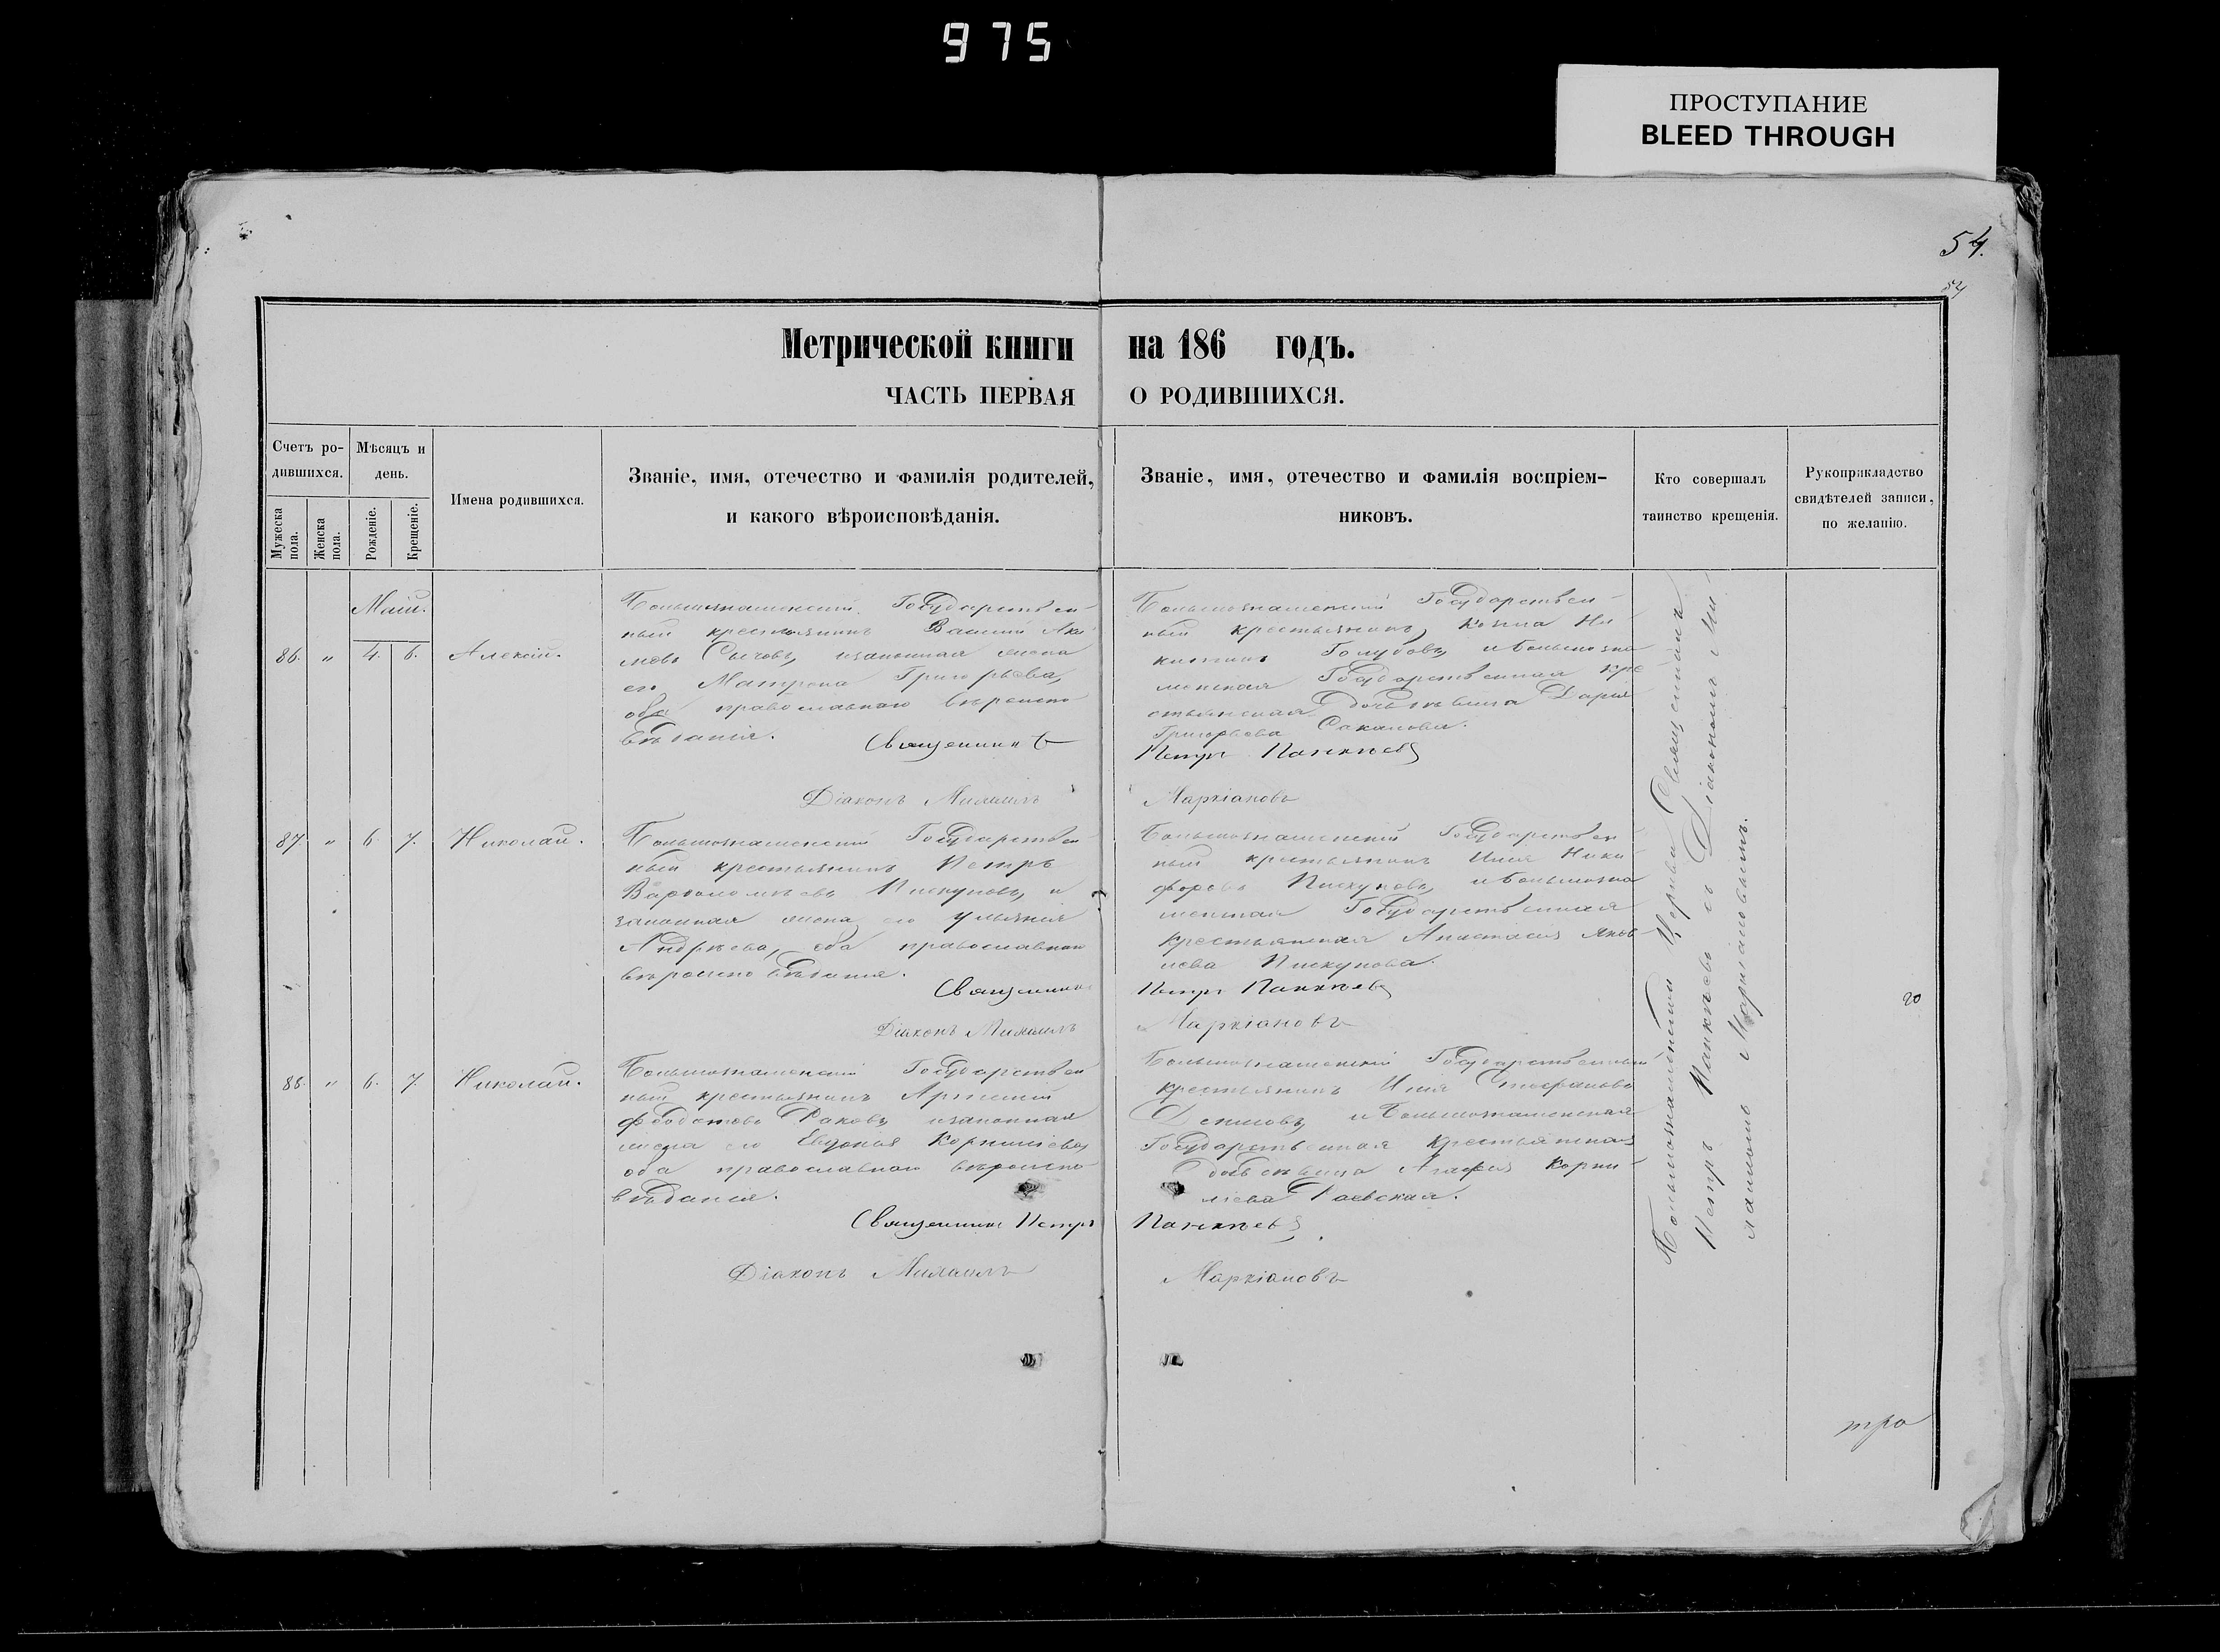 975
ПРОСТУПАНИЕ
BLEED THROUGH
54.
54
Метрической книги на 186 годъ.
ЧАСТЬ ПЕРВАЯ О РОДИВШИХСЯ.
Счетъ ро-
дившихся.
Мѣсяцъ и
день.
Мужеска
пола.
Женска
пола.
Рожденіе.
Крещеніе.
Имена родившихся.
Званіе, имя, отечество и фамилія родителей,
и какого вѣроисповѣданія.
Званіе, имя, отечество и фамилія воспріем-
никовъ.
Кто совершалъ
таинство крещенія.
Рукоприкладство
свидѣтелей записи,
по желанію.
Маій.
86. „ 4. 6. Алексій.
Большознаменскій Государствен-
ный крестьянинъ Василій Аки-
мовъ Сычовъ, и законная жена
его Матрона Григорьева,
оба православного вѣроиспо
вѣданія.
Священникъ
Діаконъ Михаилъ
Большознаменскій Государствен-
ный крестьянинъ Козма Ни-
китинъ Голубовъ, и Большозна
менская Государственная кре
стьянская дочь дѣвица Дарія
Григорьева Соколова.
Петръ Панкѣевъ
Маркіановъ
87. „ 6. 7. Николай.
Большознаменскій Государствен
ный крестьянинъ Петръ
Варѳоломѣевъ Пискуновъ, и
законная жена его Ульянія
Андрѣева, оба православного
вѣроисповѣданія.
Священникъ
Діаконъ Михаилъ
Большознаменскій Государствен
ный крестьянинъ Илія Ники-
форовъ Пискуновъ, и Большозна
менская Государственная
крестьянская Анастасія Яков
лева Пискунова.
Петръ Панкѣевъ
Маркіановъ
88. „ 6. 7. Николай.
Большознаменскій Государствен
ный крестьянинъ Артемій
Ѳедотовъ Раковъ, и законная
жена его Евдокія Корниліева,
оба православного вѣроиспо-
вѣданія.
Священникъ Петръ
Діаконъ Михаилъ
Большознаменскій Государственный
крестьянинъ Илія Стефановъ
Денисовъ, и Большознаменская
Государственная крестьянская
дочь дѣвица Агафія Корни-
ліева Раевская.
Панкѣевъ
Маркіановъ
Большознаменской Церкви Священникъ
Петръ Панкѣевъ съ Діакономъ Ми-
хаиломъ Маркіановымъ.
го
тро